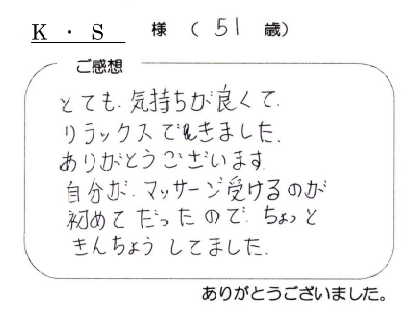 K・S 様 （ 51 歳）
ご感想
とても、気持ちが良くて、
リラックスできました。
ありがとうございます。
自分が、マッサージ受けるのが
初めてだったので、ちょっと
きんちょうしてました。
ありがとうございました。